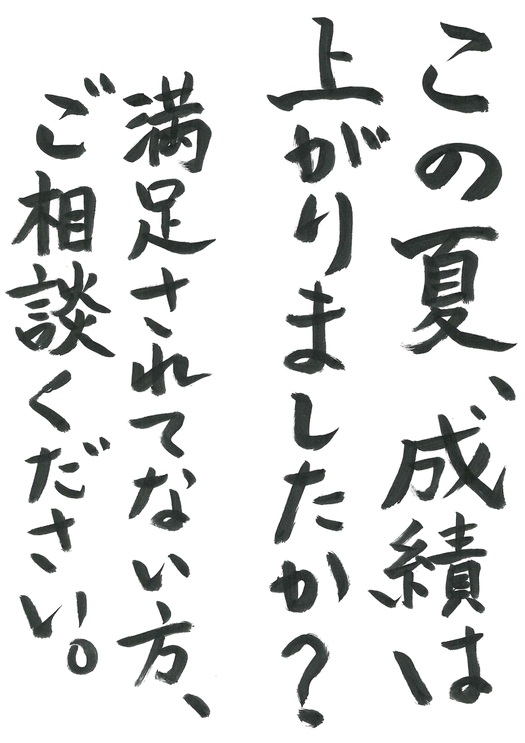 この夏、成績は
上がりましたか?
満足されてない方、
ご相談ください。